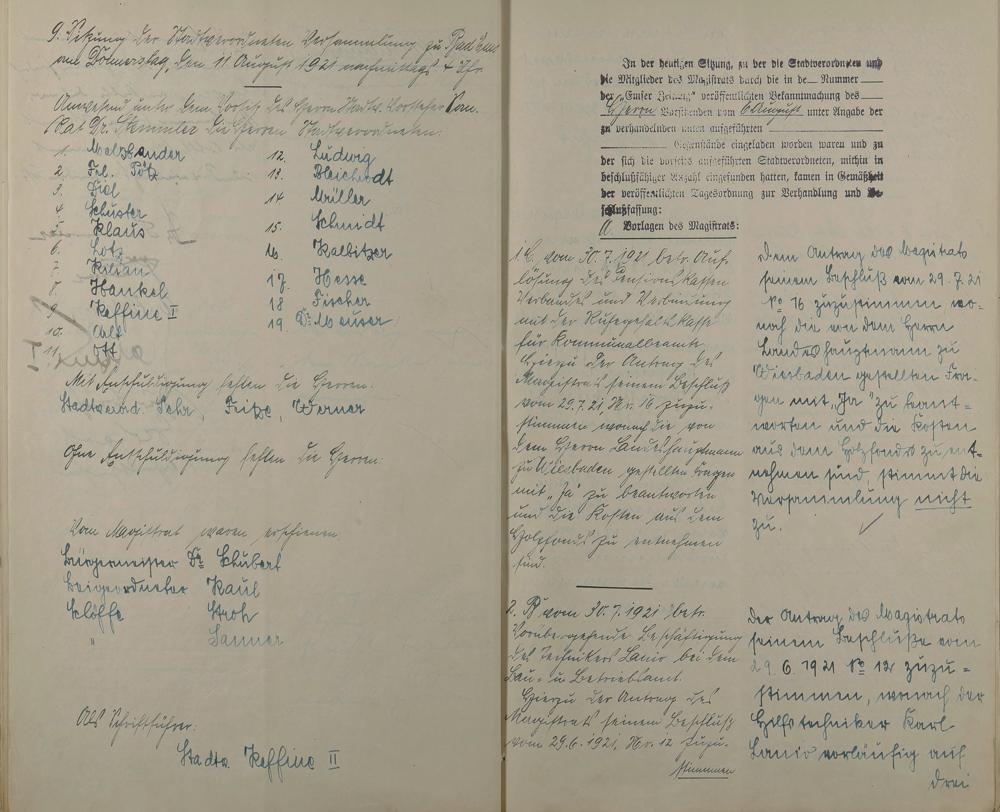 9. Sitzung der Stadtverordneten Versammlung zu Bad Ems
am Donnerstag, den 11 August 1921 nachmittags 4 Uhr.
Anwesend unter dem Vorsitz des Herrn Stadtv. Vorsteher San.
Rat Dr. Stemmler die Herren Stadtverordneten:
1. Malzbender
2. Frl. Pötz
3. Diel
4. Schuster
5. Klaus
6. Lotz
7. Kilian
8. Hankel
9. Reffine II
10. Alt
11. Ott
12. Ludwig
13. Bleichardt
14 Müller
15. Schmidt
16. Kalbitzer
17. Hesse
18 Fischer
19. Dr. Meuser
Mit Entschuldigung fehlten die Herren:
Stadtverord. Sehr, Fritze, Werner
Ohne Entschuldigung fehlten die Herren:
Vom Magistrat waren erschienen
Bürgermeister Dr. Schubert
Beigeordneter Kaul
Schöffe Stroh
" Sanner
Als Schriftführer:
Stadtv. Reffine II
In der heutigen Sitzung, zu der die Stadtverordneten und
die Mitglieder des Magistrats durch die in de Nummer
der „Emser Zeitung“ veröffentlichten Bekanntmachung des
Herrn Vorsitzenden vom 6 August unter Angabe der
zu verhandelnden unten aufgeführten
Gegenstände eingeladen worden waren und zu
der sich die vorseits aufgeführten Stadtverordneten, mithin in
beschlußfähiger Anzahl eingefunden hatten, kamen in Gemäßheit
der veröffentlichten Tagesordnung zur Verhandlung und Be-
schlußfassung:
A. Vorlagen des Magistrats:
1. vom 30.7.1921 betr. Auf-
lösung des Pensionskassen
Verbandes und Verbindung
mit der Ruhegehaltskasse
für Kommunalbeamte
Hierzu der Antrag des
Magistrats seinem Beschluß
vom 29.7.21. Nr. 16 zuzu-
stimmen wonach die von
dem Herrn Landeshauptmann
zu Wiesbaden gestellten Fragen
mit „Ja“ zu beantworten
und die Kosten aus dem
Holzfonds zu entnehmen
sind.
Dem Antrag des Magistrats
seinem Beschluß vom 29.7.21
No 16 zuzustimmen wo-
nach die von dem Herrn
Landeshauptmann zu
Wiesbaden gestellten Fra-
gen mit „Ja“ zu beant-
worten und die Kosten
aus dem Holzfonds zu ent-
nehmen sind, stimmt die
Versammlung nicht
zu.
2. vom 30.7.1921 betr.
Vorübergehende Beschäftigung
des Technikers Lanio bei dem
Bau- u Betriebsamt.
Hierzu der Antrag des
Magistrats seinem Beschluß
vom 29.6.1921. Nr. 12 zuzu-
stimmen
Der Antrag des Magistrats
seinem Beschluße vom
29.6.1921 No 12 zuzu-
stimmen, wonach der
Hilfstechniker Karl
Lanio vorläufig auf
drei